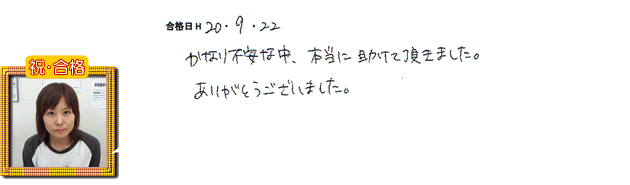 合格日 H 20・9・22
かなり不安な中、本当に助けて頂きました。
ありがとうございました。
祝・合格